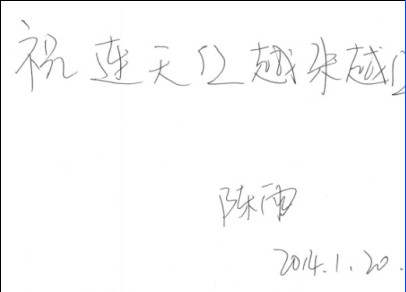 祝连天红越来越
陈雨
2014.1.20.